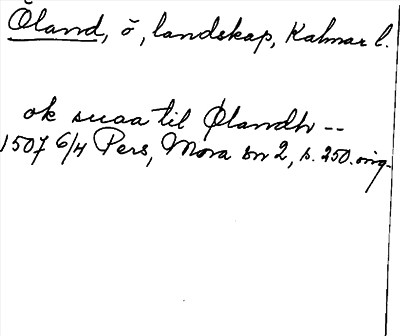 Öland, ö, landskap, Kalmar l.
ok suaa til Ølandh --
1507 6/4 Pers, Mora bn 2, s. 250. orig.